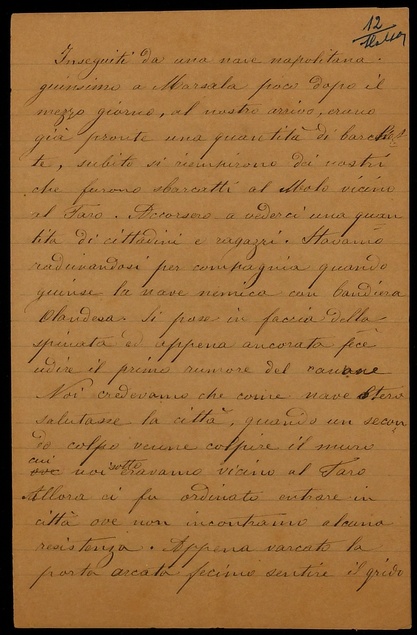 12
Inseguiti da una nave napolitana
giunsimo a Marsala poco dopo il
mezzo giorno, al nostro arrivo, erano
già pronte una quantità di barchet-
te, subito si riempirono dai nostri
che furono sbarcatti al Molo vicino
al Faro. Accorsero a vederci una quan
tità di cittadini e ragazzi. Stavamo
radunandosi per compagnia quando
giunse la nave nemica con bandiera
Olandesa. si pose in faccia della
spianata ed appena ancorata fece
udire il primo rumore del canone
Noi credevamo che come nave Estera
salutasse la città, quando un secon
do colpo venne colpire il muro
cui noi sotto eravamo vicino al Faro
Allora ci fu ordinato entrare in
città ove non incontramo alcuna
resistenza. Appena varcata la
porta arcata fecimo sentire il grido